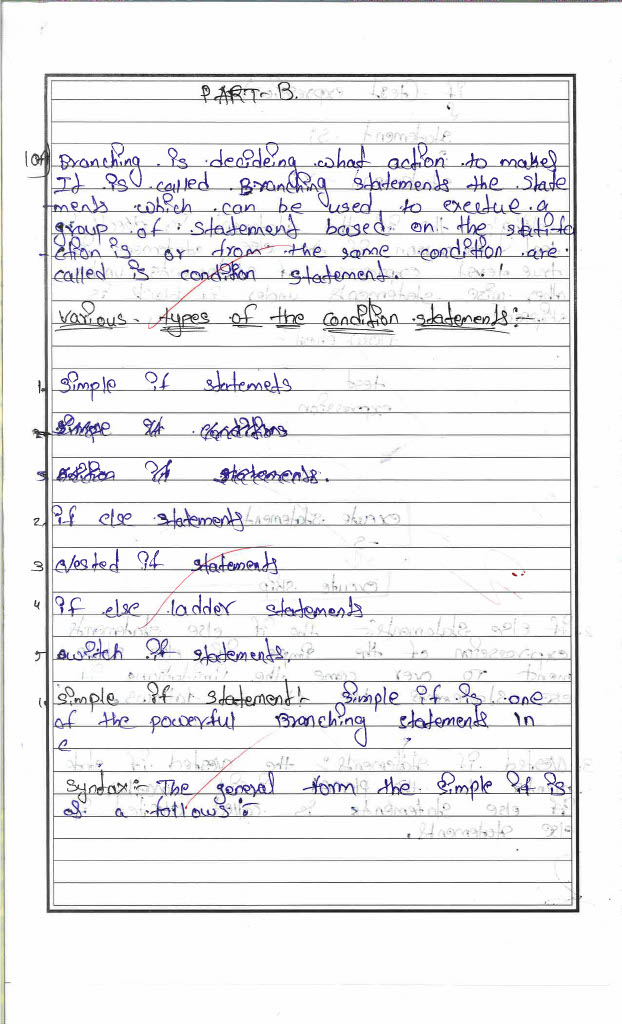 PART-B.
10a) Branching is decideing what action to makes
It is called Branching statements the state
ments which can be used to exectue a
group of statement based on the statifa
ction is or from the same condition are
called is condition statement.
various types of the condition statements:-
1. simple if statemets
2. simpe if conditions
3. if statements.
2. if else statements
3 Nested if statements
4 if else ladder statements
5 switch if statements.
1. simple if statement:- simple if is one
of the powerful Branching statements in
c
syntax:- The general form the simple if is
as a follows:-